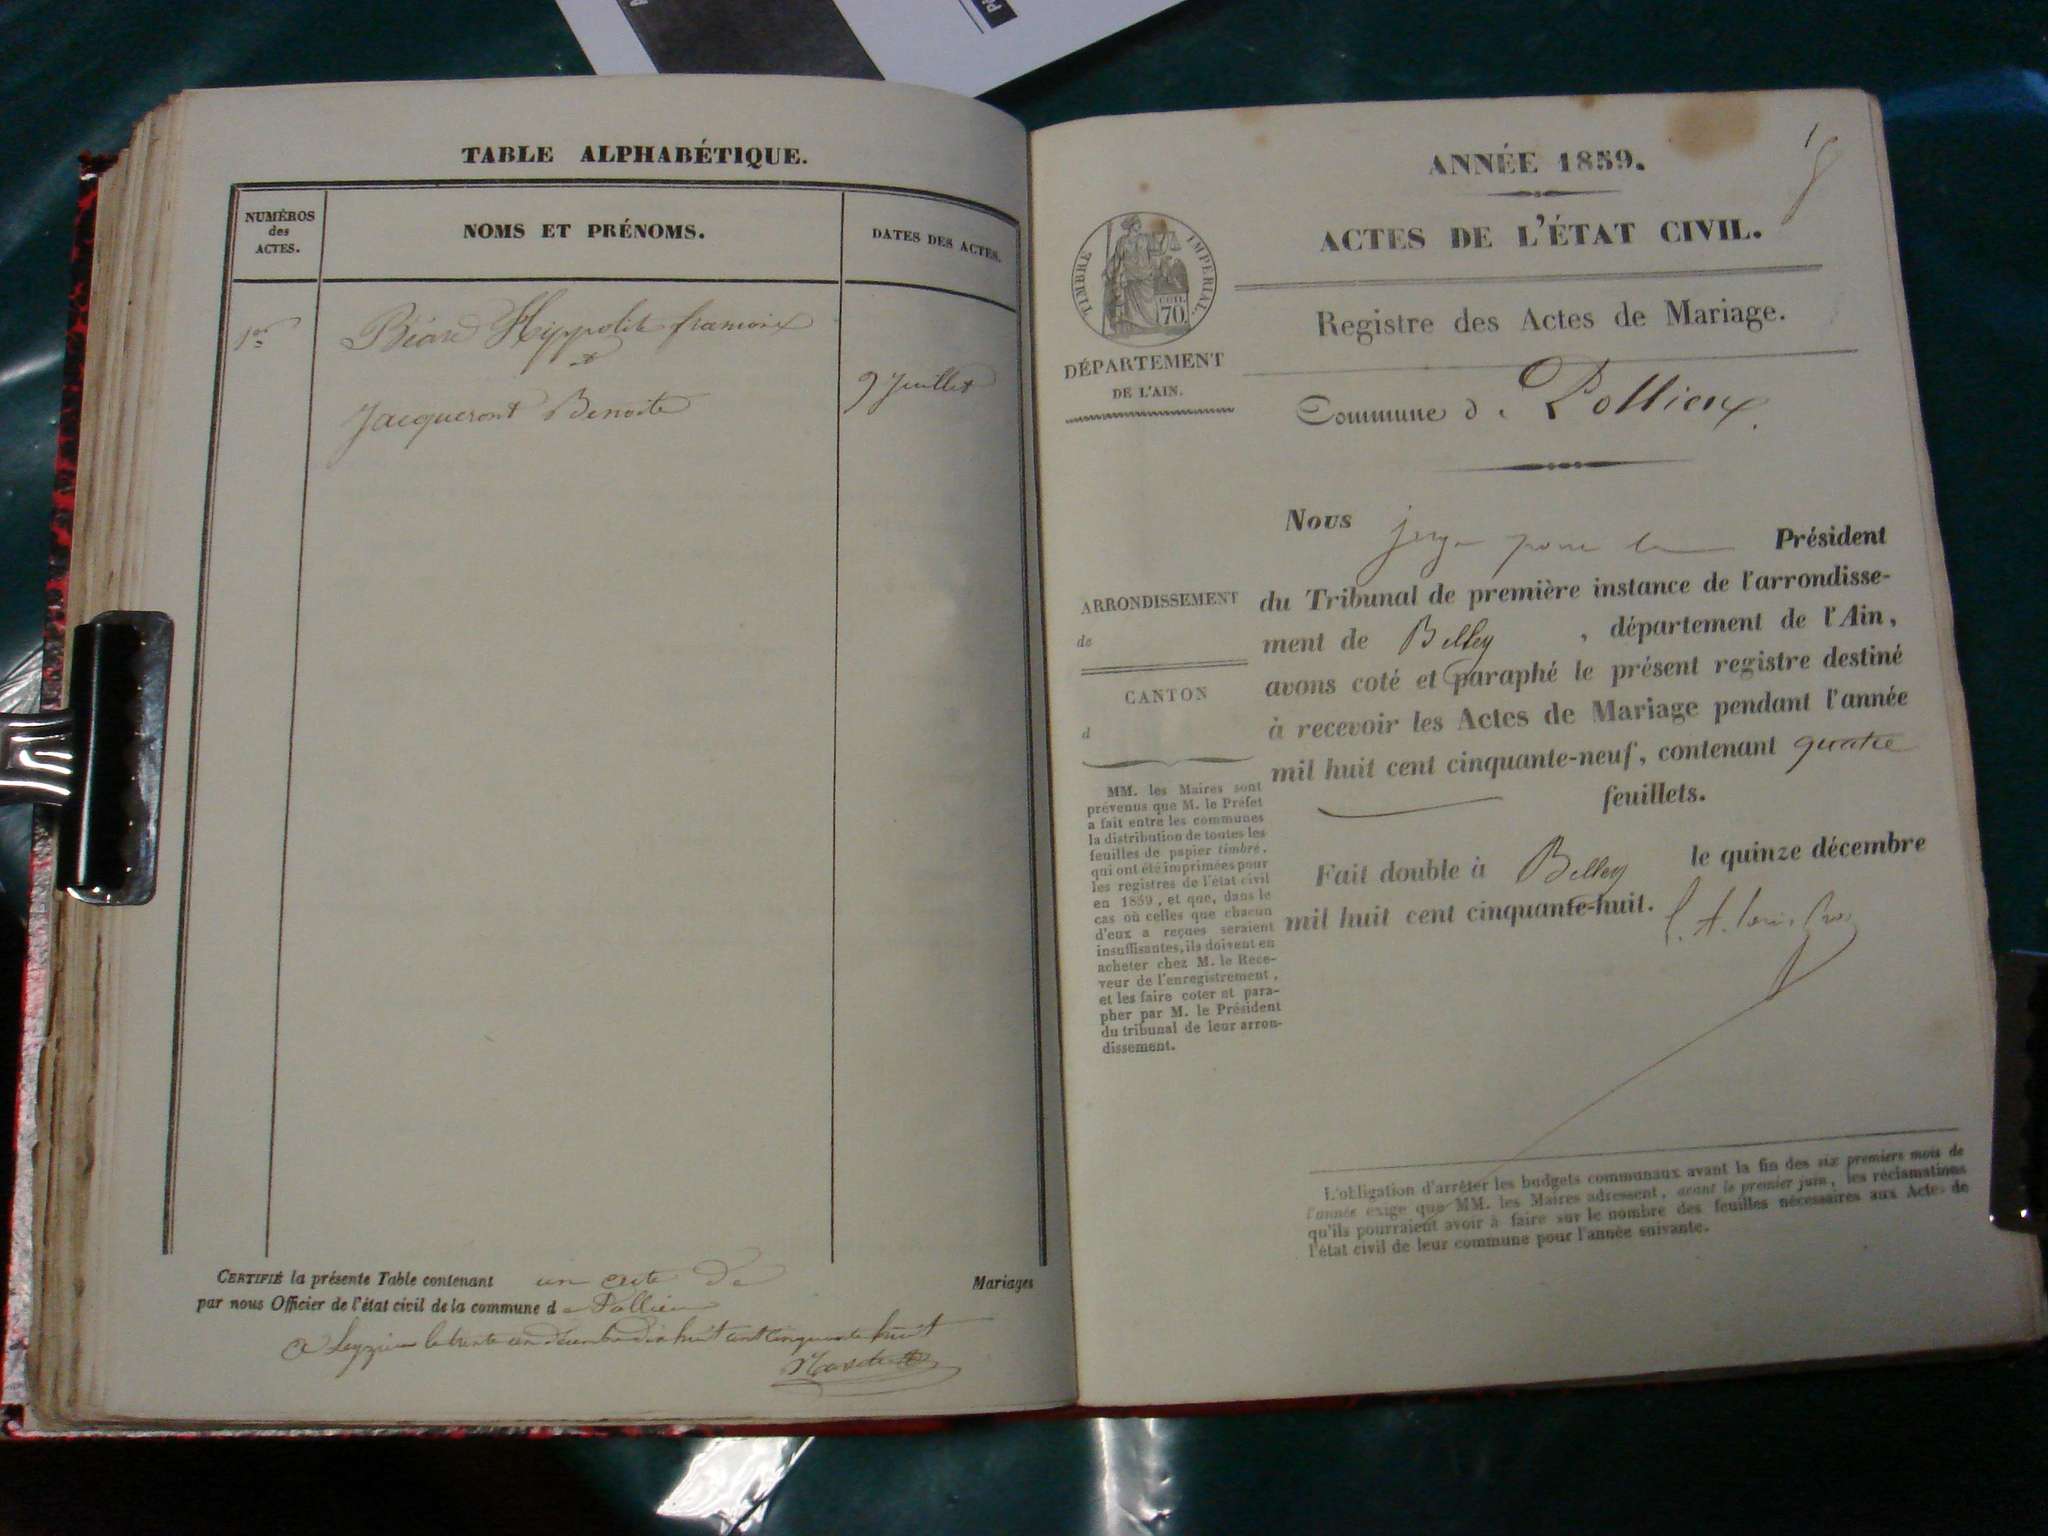 TABLE ALPHABÉTIQUE.
NUMÉROS
des
ACTES.
NOMS ET PRÉNOMS.
DATES DES ACTES.
1er
Béard Hippolite francois
et
9 Juillet
Jacqueront Benoite
CERTIFIÉ la présente Table contenant un acte de Mariages
par nous Officier de l'état civil de la commune d e Pollieu
a Leyzieu le trente un décembre dix huit cent cinquante huit
ANNÉE 1859.
ACTES DE L'ÉTAT CIVIL.
TIMBRE IMPÉRIAL.
70
DÉPARTEMENT
DE L'AIN.
Registre des Actes de Mariage.
Commune d e Pollieux.
ARRONDISSEMENT
de
CANTON
d
MM. les Maires sont
prévenus que M. le Préfet
a fait entre les communes
la distribution de toutes les
feuilles de papier timbré,
qui ont été imprimées pour
les registres de l'état civil
en 1859, et que, dans le
cas où celles que chacun
d'eux a reçues seraient
insuffisantes, ils doivent en
acheter chez M. le Rece-
veur de l'enregistrement,
et les faire coter et para-
pher par M. le Président
du tribunal de leur arron-
dissement.
Nous juge pour le Président
du Tribunal de première instance de l'arrondisse-
ment de Belley , département de l'Ain,
avons coté et paraphé le présent registre destiné
à recevoir les Actes de Mariage pendant l'année
mil huit cent cinquante-neuf, contenant quatre
feuillets.
Fait double à Belley le quinze décembre
mil huit cent cinquante-huit.
L'obligation d'arrêter les budgets communaux avant la fin des six premiers mois de
l'année exige que MM. les Maires adressent, avant le premier juin, les réclamations
qu'ils pourraient avoir à faire sur le nombre des feuilles nécessaires aux Actes de
l'état civil de leur commune pour l'année suivante.